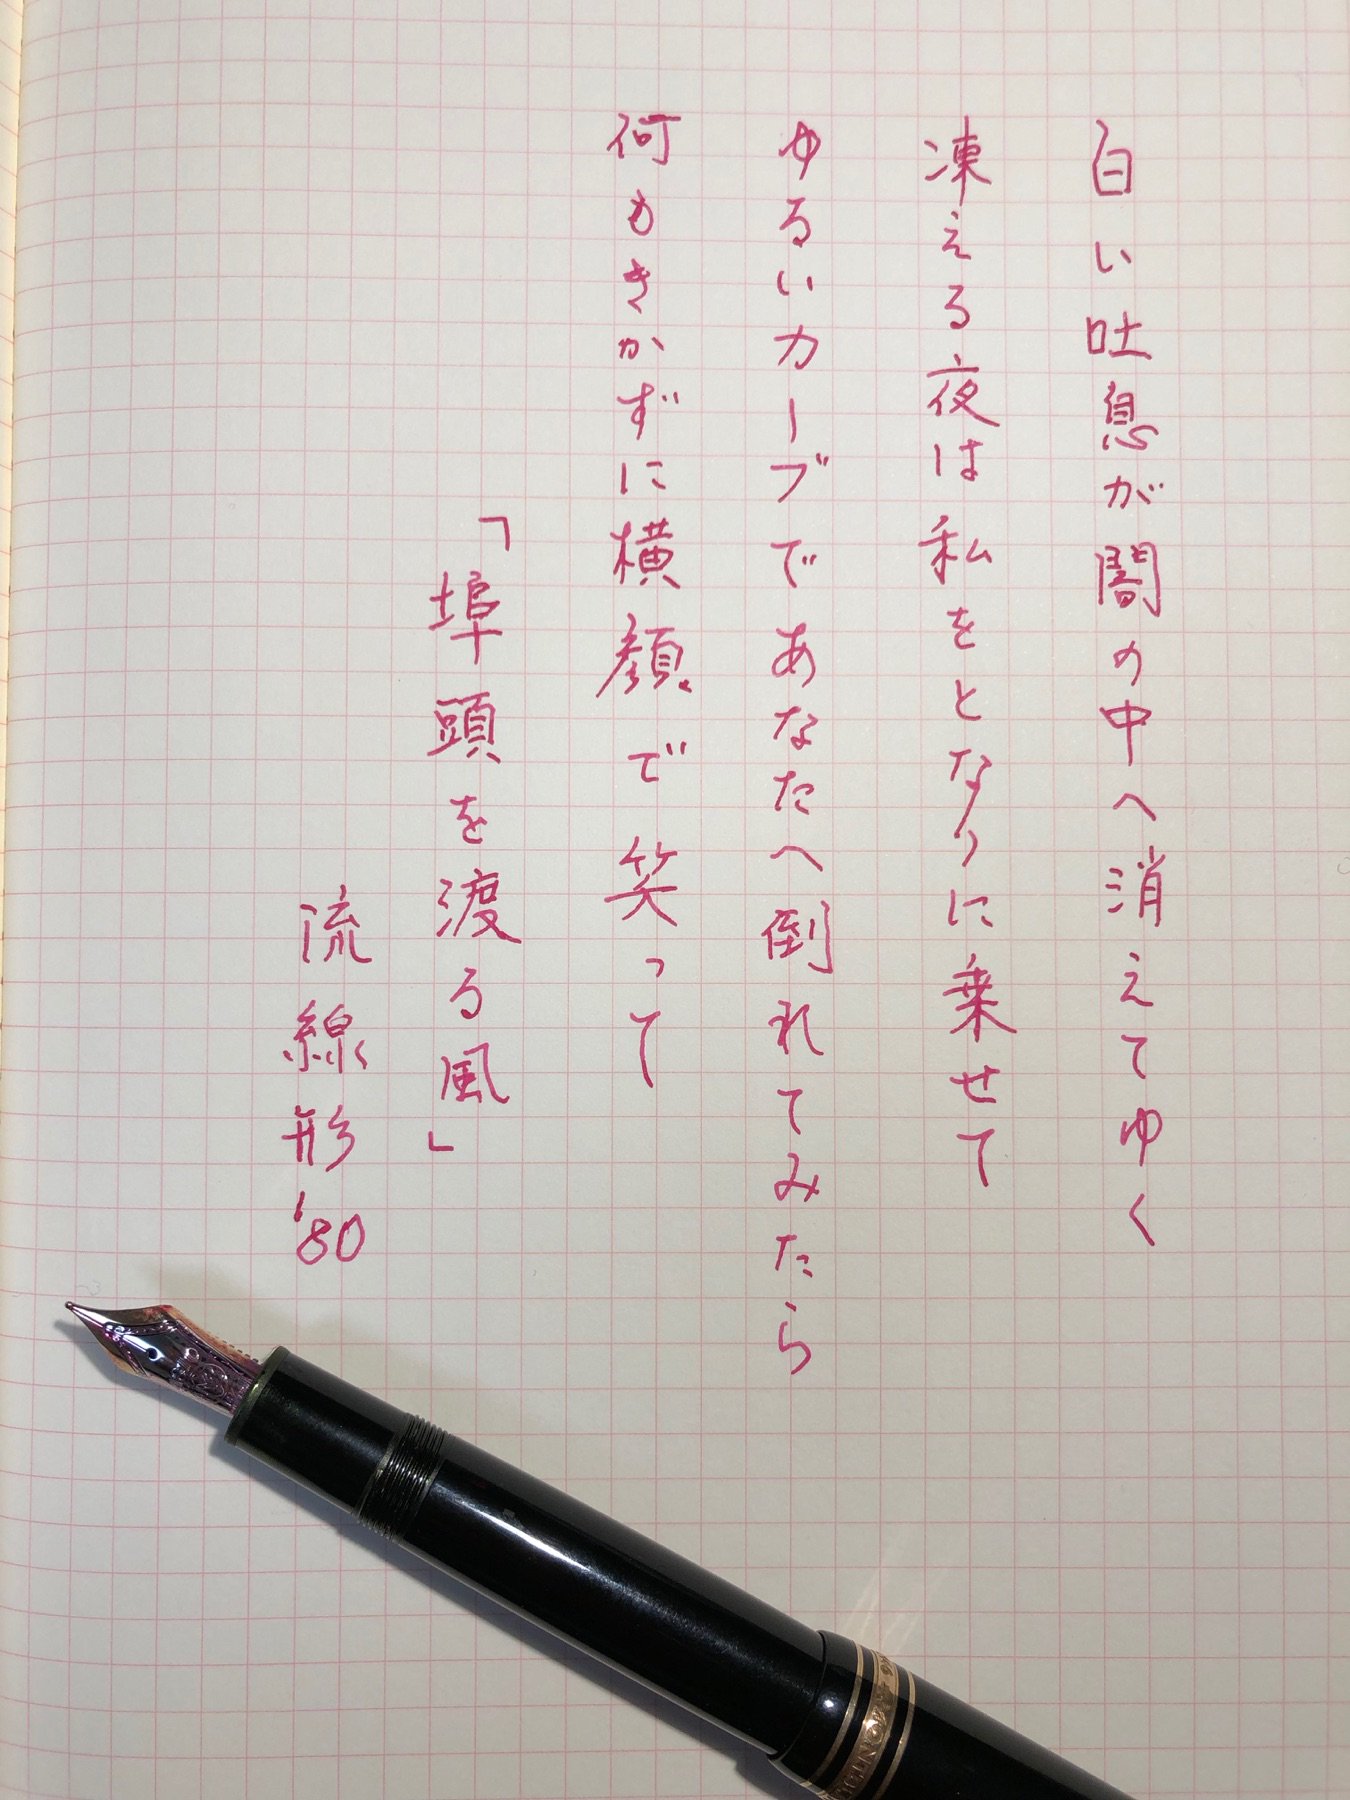 白い吐息が闇の中へ消えてゆく
凍える夜は私をとなりに乗せて
ゆるいカーブであなたへ倒れてみたら
何もきかずに横顔で笑って
「埠頭を渡る風」
流線形'80